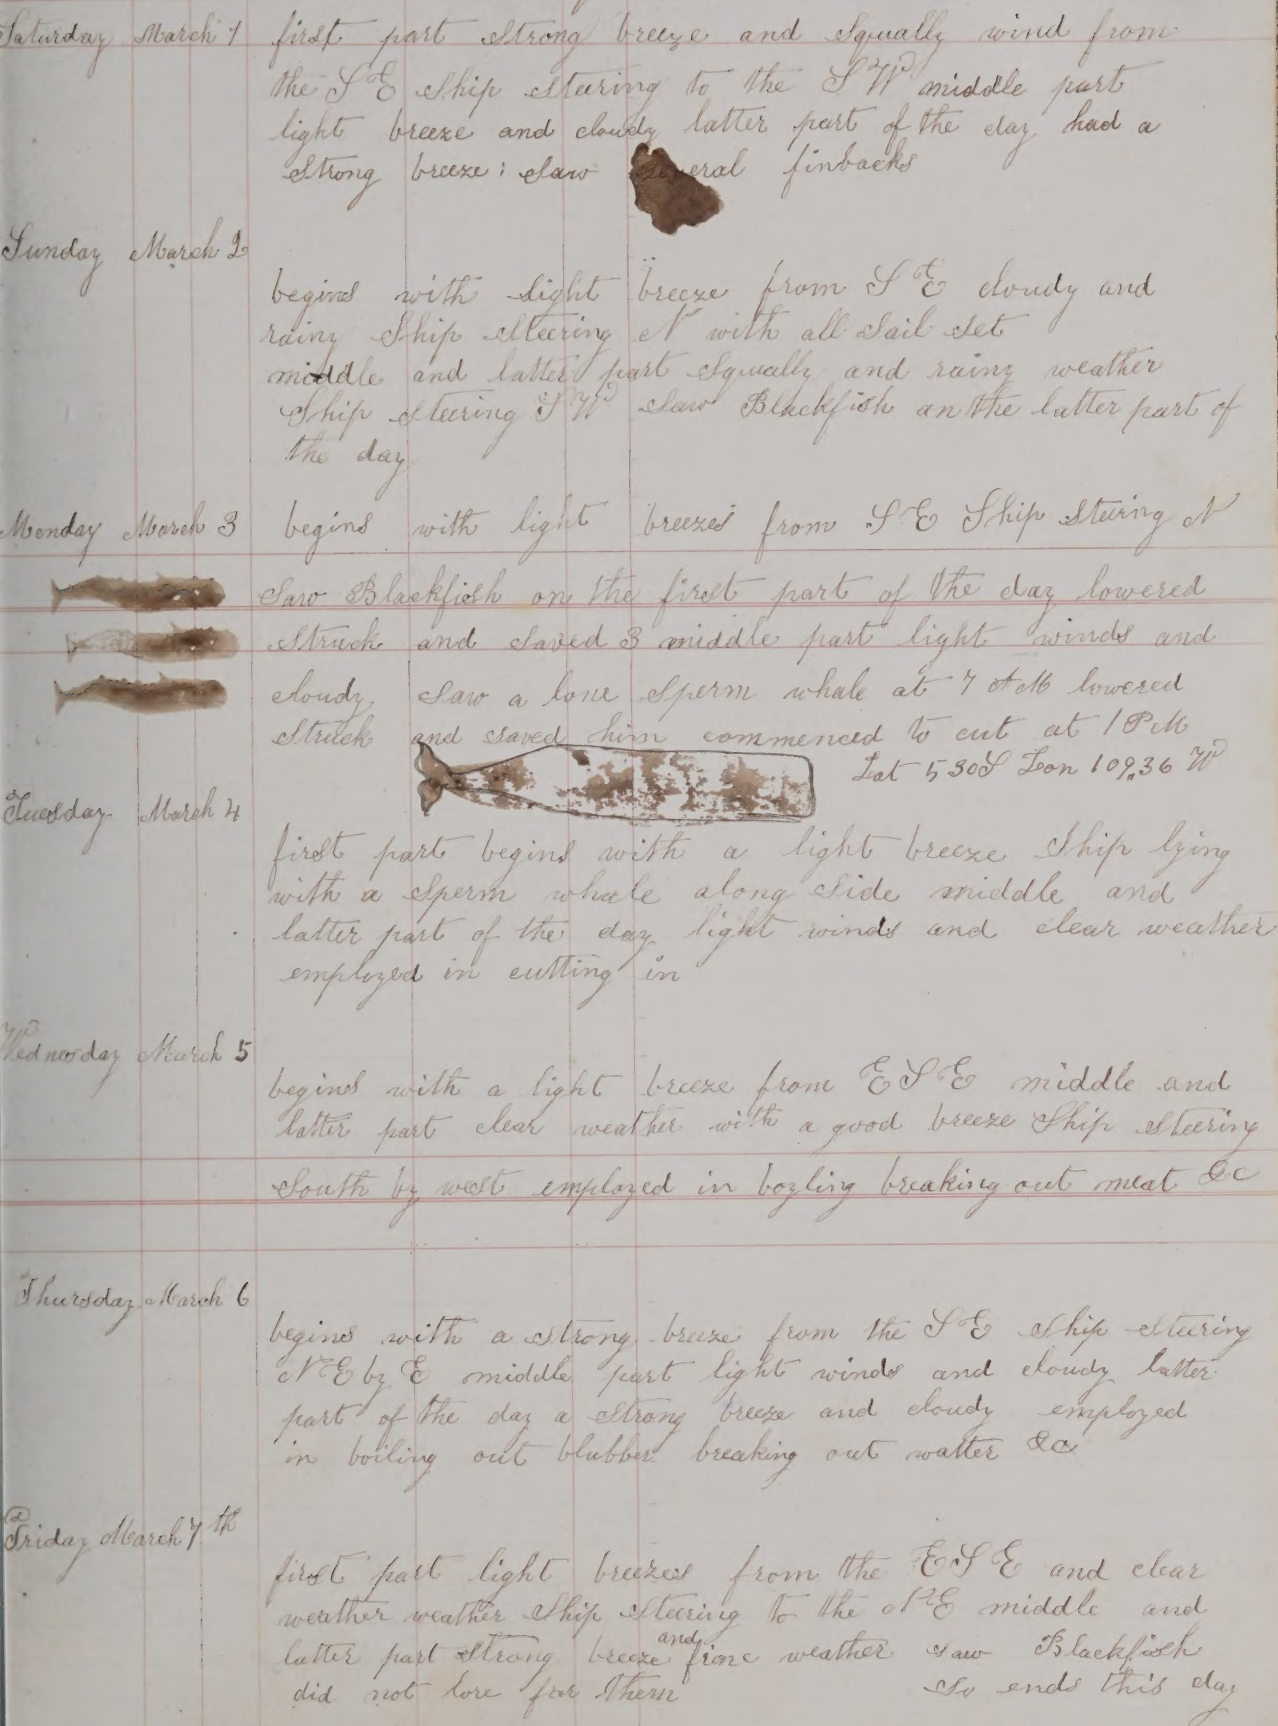 Saturday March 1 first part strong breeze and Squally wind from
the S E Ship steering to the S W middle part
light breeze and cloudy latter part of the day had a
Strong breeze: Saw several finbacks
Sunday March 2
begins with light breeze from S E cloudy and
rainy Ship steering N with all Sail Set
middle and latter part Squally and rainy weather
Ship steering S W Saw Blackfish an the latter part of
the day
Monday March 3 begins with light breezes from S E Ship Steiring N
Saw Blackfish on the first part of the day lowered
Struck and Saved 3 middle part light winds and
cloudy Saw a lone Sperm whale at 7 AM lowered
Struck and saved him commenced to cut at 1 PM
Lat 5 30 S Lon 109,36 W
Tuesday March 4
first part begins with a light breeze Ship lying
with a Sperm whale along Side middle and
latter part of the day light winds and clear weather
employed in cutting in
Wednesday March 5
begins with a light breeze from E S E middle and
latter part clear weather with a good breeze Ship steering
South by west employed in boyling breaking out meat &c
Thursday March 6
begins with a strong breeze from the S E Ship steering
N E by E middle part light winds and cloudy latter
part of the day a strong breeze and cloudy employed
in boiling out blubber breaking out watter &c
Friday March 7th
first part light breezes from the E S E and clear
weather weather Ship Steering to the N E middle and
latter part Strong breeze and fine weather saw Blackfish
did not lore for them So ends this day